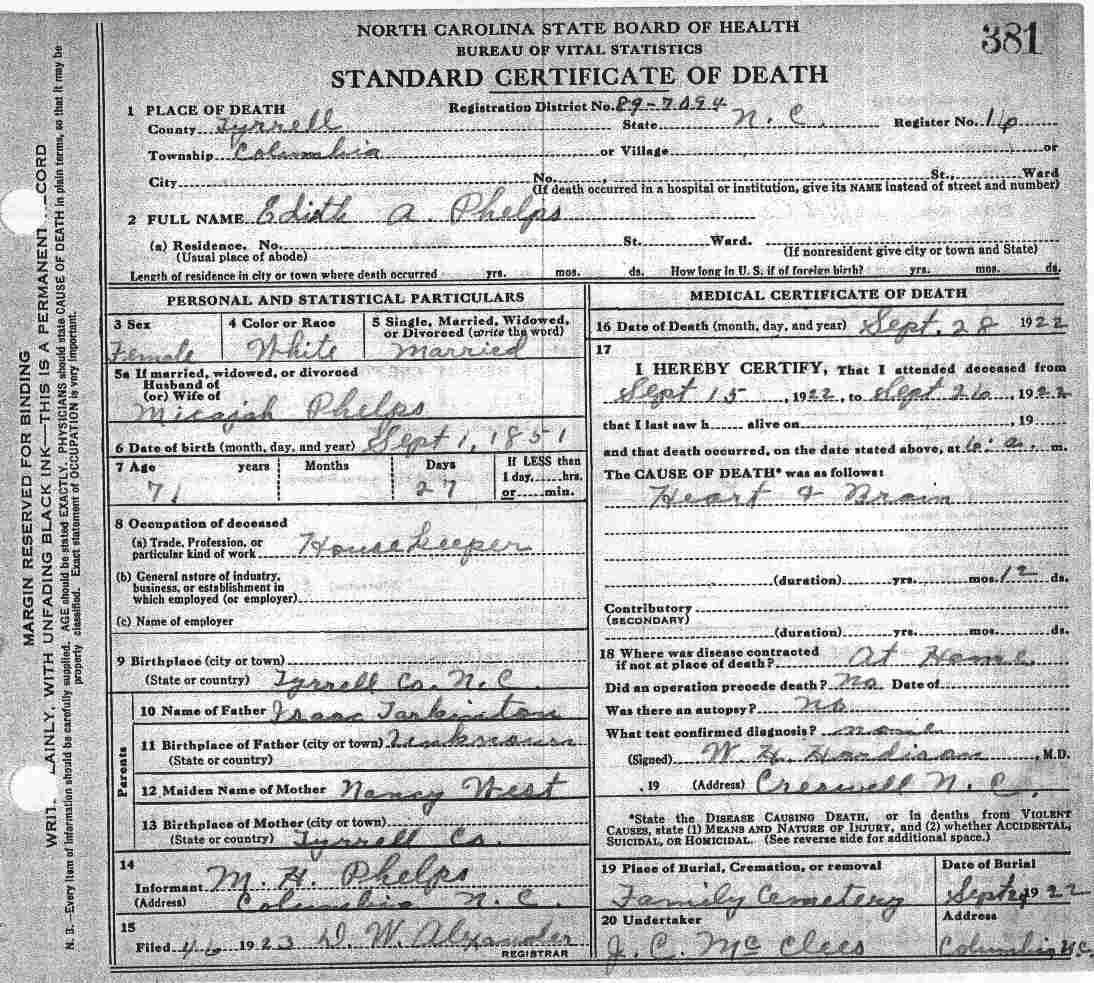 381
NORTH CAROLINA STATE BOARD OF HEALTH
BUREAU OF VITAL STATISTICS
STANDARD CERTIFICATE OF DEATH
1 PLACE OF DEATH Registration District No. 89-7094
County Tyrrell State N. C. Register No. 16
Township Columbia or Village or
City No. , St., Ward
(If death occurred in a hospital or institution, give its NAME instead of street and number)
2 FULL NAME Edith A. Phelps
(a) Residence. No. St. Ward.
(Usual place of abode) (If nonresident give city or town and State)
Length of residence in city or town where death occurred yrs. mos. ds. How long in U. S. if of foreign birth? yrs. mos. ds.
PERSONAL AND STATISTICAL PARTICULARS
3 Sex 4 Color or Race 5 Single, Married, Widowed,
or Divorced (write the word)
Female White Married
5a If married, widowed, or divorced
Husband of
(or) Wife of
Micajah Phelps
6 Date of birth (month, day, and year) Sept 1, 1851
7 Age years Months Days If LESS than
1 day, hrs.
71 27 or min.
8 Occupation of deceased
(a) Trade, Profession, or
particular kind of work House keeper
(b) General nature of industry,
business, or establishment in
which employed (or employer)
(c) Name of employer
9 Birthplace (city or town)
(State or country) Tyrrell Co. N. C.
Parents
10 Name of Father Isaac Tarkinton
11 Birthplace of Father (city or town) Unknown
(State or country)
12 Maiden Name of Mother Nancy West
13 Birthplace of Mother (city or town)
(State or country) Tyrrell Co.
14
Informant M. H. Phelps
(Address) Columbia N. C.
15
Filed 4/6 1923 D. W. Alexander
REGISTRAR
MEDICAL CERTIFICATE OF DEATH
16 Date of Death (month, day, and year) Sept. 28 1922
17
I HEREBY CERTIFY, That I attended deceased from
Sept 15, 1922, to Sept 26 1922
that I last saw h alive on , 19
and that death occurred, on the date stated above, at 6:a. m.
The CAUSE OF DEATH* was as follows:
Heart & Brain
(duration) yrs. mos. 12 ds.
Contributory
(SECONDARY)
(duration) yrs. mos. ds.
18 Where was disease contracted
if not at place of death? At Home.
Did an operation precede death? No Date of
Was there an autopsy? no
What test confirmed diagnosis? none
(Signed) W. H. Hardison, M.D.
, 19 (Address) Creswell N. C.
*State the DISEASE CAUSING DEATH, or in deaths from VIOLENT
CAUSES, state (1) MEANS AND NATURE OF INJURY, and (2) whether ACCIDENTAL,
SUICIDAL, OR HOMICIDAL. (See reverse side for additional space.)
19 Place of Burial, Cremation, or removal Date of Burial
Family Cemetery Sept 29 1922
20 Undertaker Address
J. C. McClees Columbia N.C.
MARGIN RESERVED FOR BINDING
WRIT AINLY, WITH UNFADING BLACK INK—THIS IS A PERMANENT CORD
N. B.—Every item of information should be carefully supplied. AGE should be stated EXACTLY. PHYSICIANS should state CAUSE OF DEATH in plain terms, so that it may be
properly classified. Exact statement of OCCUPATION is very important.